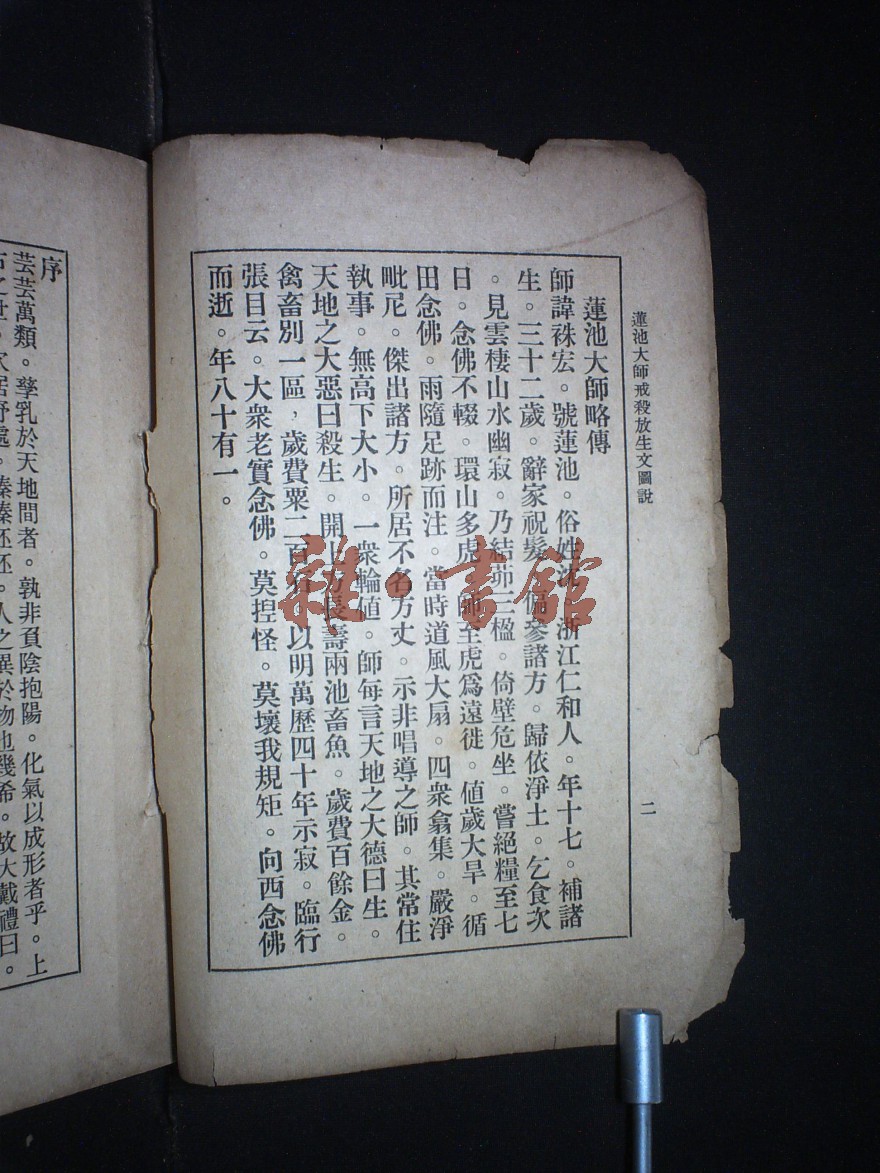 蓮池大師戒殺放生文圖說
二
蓮池大師略傳
師諱袾宏。號蓮池。俗姓沈。浙江仁和人。年十七。補諸
生。三十二歲。辭家祝髮。徧參諸方。歸依淨土。乞食次
。見雲棲山水幽寂。乃結茆一楹。倚壁危坐。嘗絕糧至七
日。念佛不輟。環山多虎。師至虎爲遠徙。値歲大旱。循
田念佛。雨隨足跡而注。當時道風大扇。四衆翕集。嚴淨
毗尼。傑出諸方。所居不名方丈。示非唱導之師。其常住
執事。無高下大小。一衆輪値。師每言天地之大德曰生。
天地之大惡曰殺生。開上方長壽兩池畜魚。歲費百餘金。
禽畜別一區，歲費粟二百石。以明萬歷四十年示寂。臨行
張目云。大衆老實念佛。莫揑怪。莫壞我規矩。向西念佛
而逝。年八十有一。
序
芸芸萬類。孳乳於天地間者。孰非負陰抱陽。化氣以成形者乎。上
居野處。榛榛狉狉。人之異於物也幾希。故大戴禮曰。
雜·書館